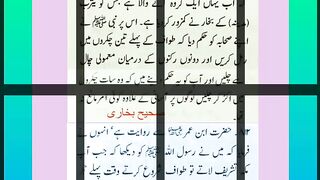 کہ اب یہاں ایک گروہ آنے والا ہے جس کو یثرب
(مدینہ) کے بخار نے کمزور کردیا ہے۔ اس پر نبی ﷺ نے
اپنے صحابہ کو حکم دیا کہ طواف کے پہلے تین چکروں میں
رمل کریں اور دونوں رکنوں کے درمیان معمولی چال
سے چلیں اور آپ کو یہ حکم دینے میں کہ وہ سات چکروں
صحیح بخاری
حضرت ابن عمر ؓ سے روایت ہے' انہوں نے
کہ میں نے رسول اللہ ﷺ کو دیکھا کہ جب آپ
مکہ تشریف لاتے تو طواف شروع کرتے وقت پہلے